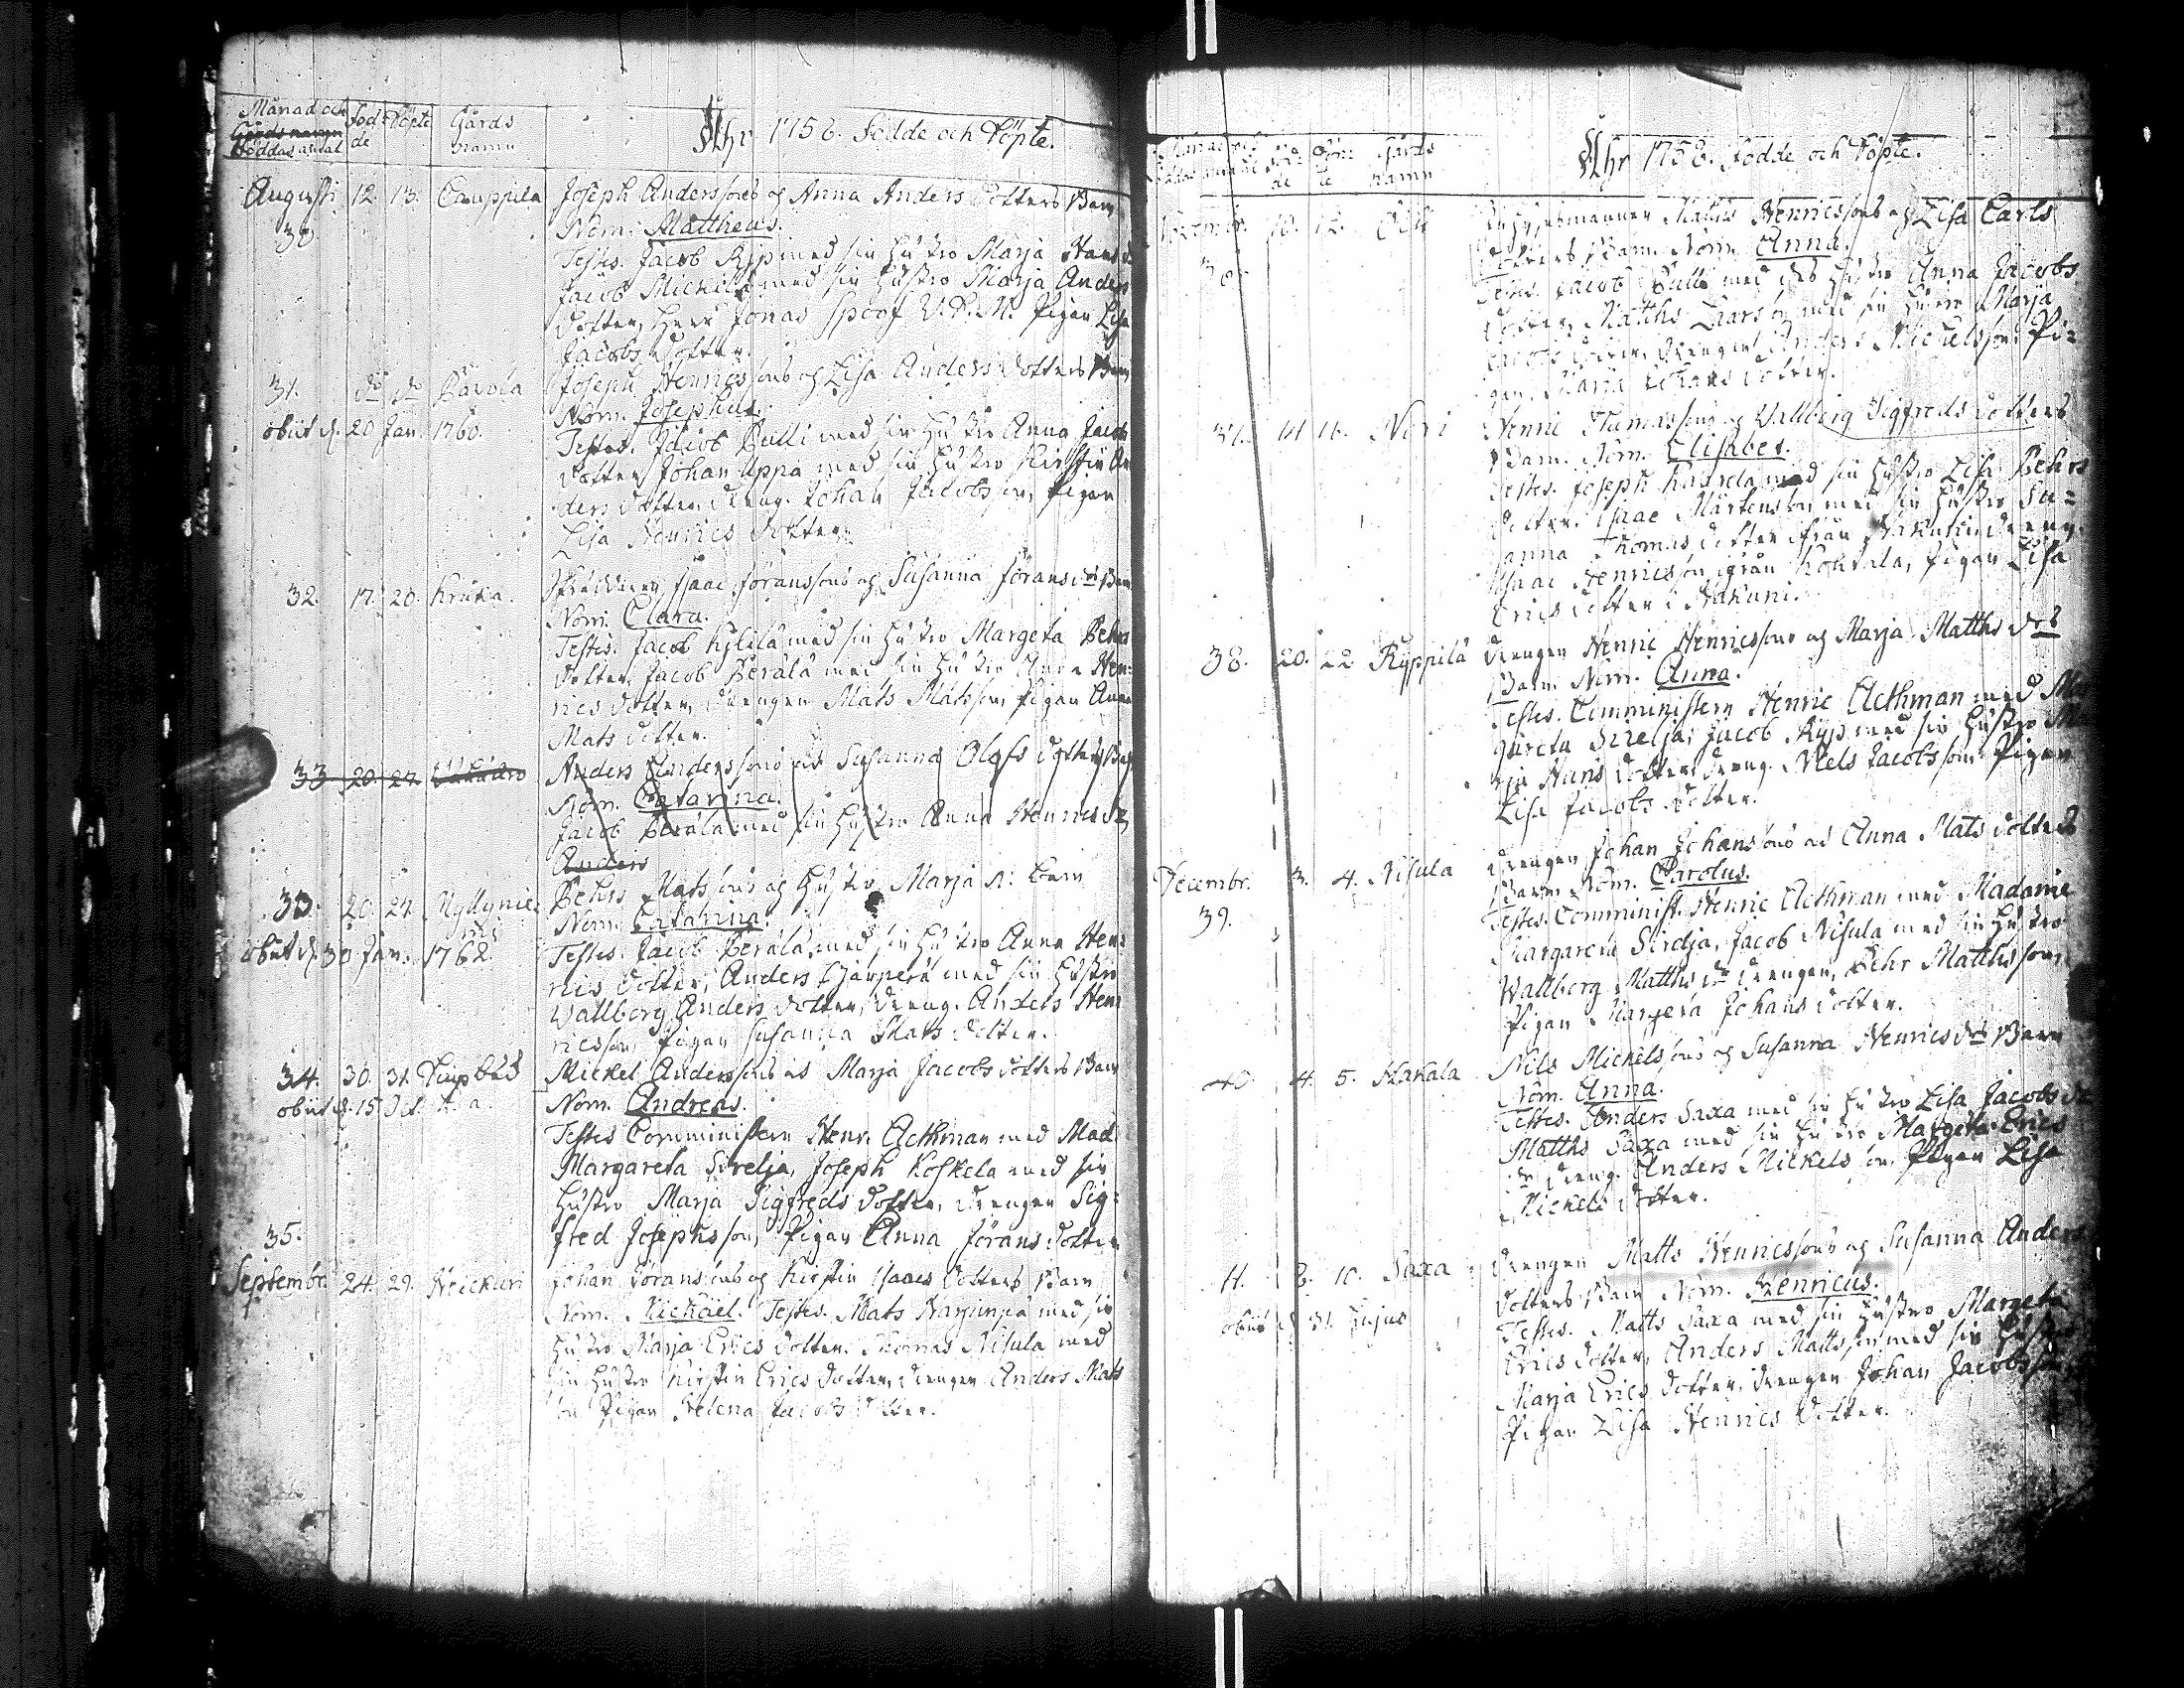 Månad och Föd- Döpte Gårds
Gårds namn de namn
Föddas antal
Åhr 1758. Födde och Döpte.
Augusti 12. 13. Cauppila Joseph Anderssons og Anna Anders Dotters Barn
30. Nom. Mattheus.
Testes. Jacob Ryp med sin Hustro Marja Hans d
Jacob Mickila med sin Hustro Marja Anders
Dotter, Herr Jonas Spoof V.D.M. Pigan Lisa
Jacobs Dotter.
31. do do Påvola Joseph Henricssons og Lisa Anders Dotters Barn
obiit d. 20 Jan. 1760. Nom. Josephus.
Testes. Jacob Pulli med sin Hustro Anna Jacobs
Dotter, Johan Uppa med sin Hustro Kirstin An
ders Dotter, Dreng. Johan Jacobsson, Pigan
Lisa Henrics Dotter.
32. 17. 20. Kruka. Isaac Jöranssons og Susanna Jörans dr Barn
Nom. Clara.
Testes. Jacob Kylilä med sin Hustro Margeta Pehrs
Dotter, Jacob Perälä med sin Hustro Anna Hen-
rics Dotter, Drengen Mats Matsson, Pigan Anna
Mats Dotter.
33 20. 27. Anders Anderssons as Susanna Olofs Dotters Barn
Nom. Catarina.
Jacob Perälä med sin Hustro Anna Henrics d
Anders
33. 20. 27. Myllynie- Pehrs Matssons og Hustro Marja N: Barn
mi Nom. Catarina.
obiit d. 30 Jan. 1762. Testes. Jacob Perälä med sin Hustro Anna Hen-
rics Dotter, Anders med sin Hustro
Wallborg Anders Dotter, Dreng. Anders Hen
ricsson, Pigan Susanna Mats Dotter.
34. 30. 31. Mickel Anderssons as Marja Jacobs Dotters Barn
obiit d. 15 Oct. h. a. Nom. Andreas.
Testes Comministern Henr. Aethman med Mad.
Margareta Sirelja, Joseph Koskela med sin
Hustro Marja Sigfreds Dotter, Drengen Sig-
fred Josephsson, Pigan Anna Jörans Dotter
35.
Septembr. 24. 29. Johan Jöranssons og Kirstin Isaacs Dotters Barn
Nom. Mickäel. Testes. Mats Harjunpä med sin
Hustro Marja Erics Dotter. Thomas Nisula med
sin Hustro Kirstin Erics Dotter, Drengen Anders Mats
son Pigan Helena Jacobs Dotter.
Åhr 1758. Födde och Döpte.
10. 12. Matts Henricssons og Lisa Carls
36. Dotters Barn. Nom. Anna.
Testes. Jacob Pulli med des Hustro Anna Jacobs
Dotter, Matths Larsson med sin Hustro Marja
Jacobs Dotter, Drengen Anders Mickelsson, Pi-
gan Marja Johans Dotter.
37. 14 16. Henric Thomassons og Wallborg Sigfreds Dotters
Barn. Nom. Elisabet.
Testes. Joseph med sin Hustro Lisa Pehrs
Dotter. Isaac Mårtensson med sin Hustro Su-
sanna Thomas Dotter ifrån Nakuni, Dreng.
Isaac Henricsson ifrån Koktala, Pigan Lisa
Erics Dotter i Nakuni.
38. 20. 22 Ryppilä Drengen Henric Henricssons og Marja Matths drs
Barn. Nom. Anna.
Testes. Comministern Henric Aethman med Mar
gareta Sirelja, Jacob Ryp med sin Hustro Ma
rja Hans Dotter, Dreng. Niels Jacobsson, Pigan
Lisa Jacobs Dotter.
Decembr. 3. 4. Nisula Drengen Johan Johanssons as Anna Mats Dotters
39. Barn Nom. Carolus.
Testes. Comminist. Henric Aethman med Madame
Margareta Sirelja, Jacob Nisula med sin Hustro
Wallborg Matths dr Drengen, Pehr Matthsson,
Pigan Margeta Johans Dotter.
40. 4. 5. Hakala Nils Mickelssons og Susanna Henrics drs Barn
Nom. Anna.
Testes. Anders Saxa med sin Hustro Lisa Jacobs dr
Matths Saxa med sin Hustro Margeta Erics
dr Dreng. Anders Mickelsson, Pigan Lisa
Mickels Dotter.
41. 8. 10. Saxa Drengen Matts Henricssons og Susanna Anders
Dotters Barn Nom. Henricus.
obiit d. 31. hujus Testes. Matts Saxa med sin Hustro Margeta
Erics Dotter, Anders Mattsson med sin Hustro
Marja Erics Dotter, Drengen Johan Jacobsson
Pigan Lisa Henrics Dotter.